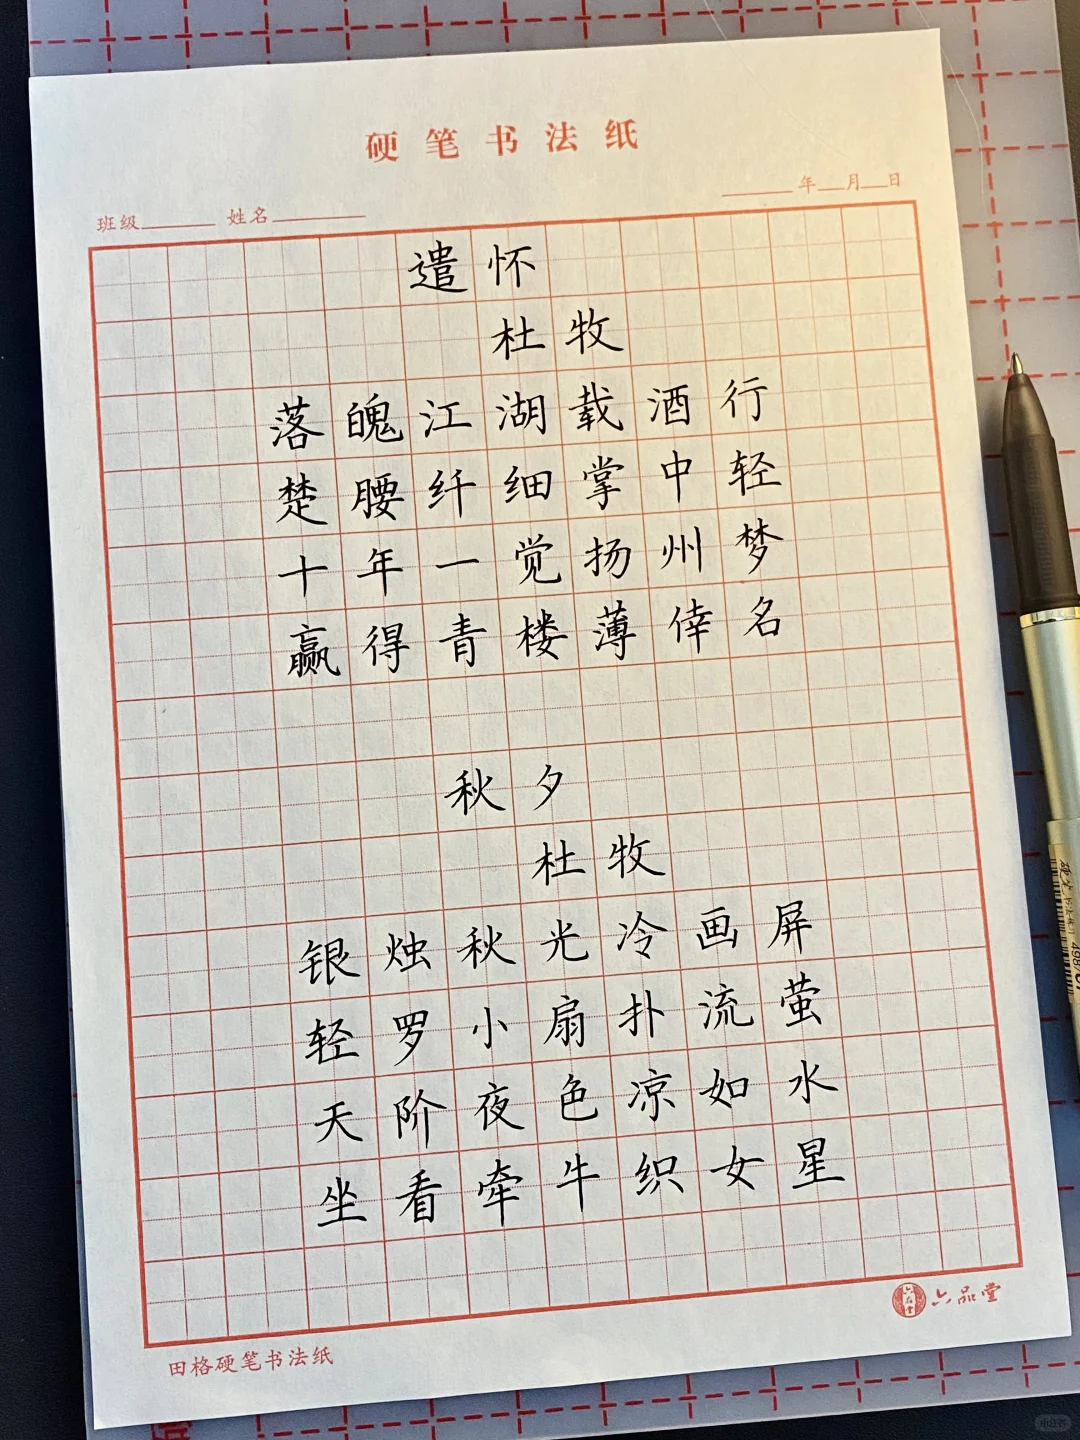 硬笔书法纸
班级 姓名 年 月 日
遣怀
杜牧
落魄江湖载酒行
楚腰纤细掌中轻
十年一觉扬州梦
赢得青楼薄倖名
秋夕
杜牧
银烛秋光冷画屏
轻罗小扇扑流萤
天阶夜色凉如水
坐看牵牛织女星
六品堂
田格硬笔书法纸